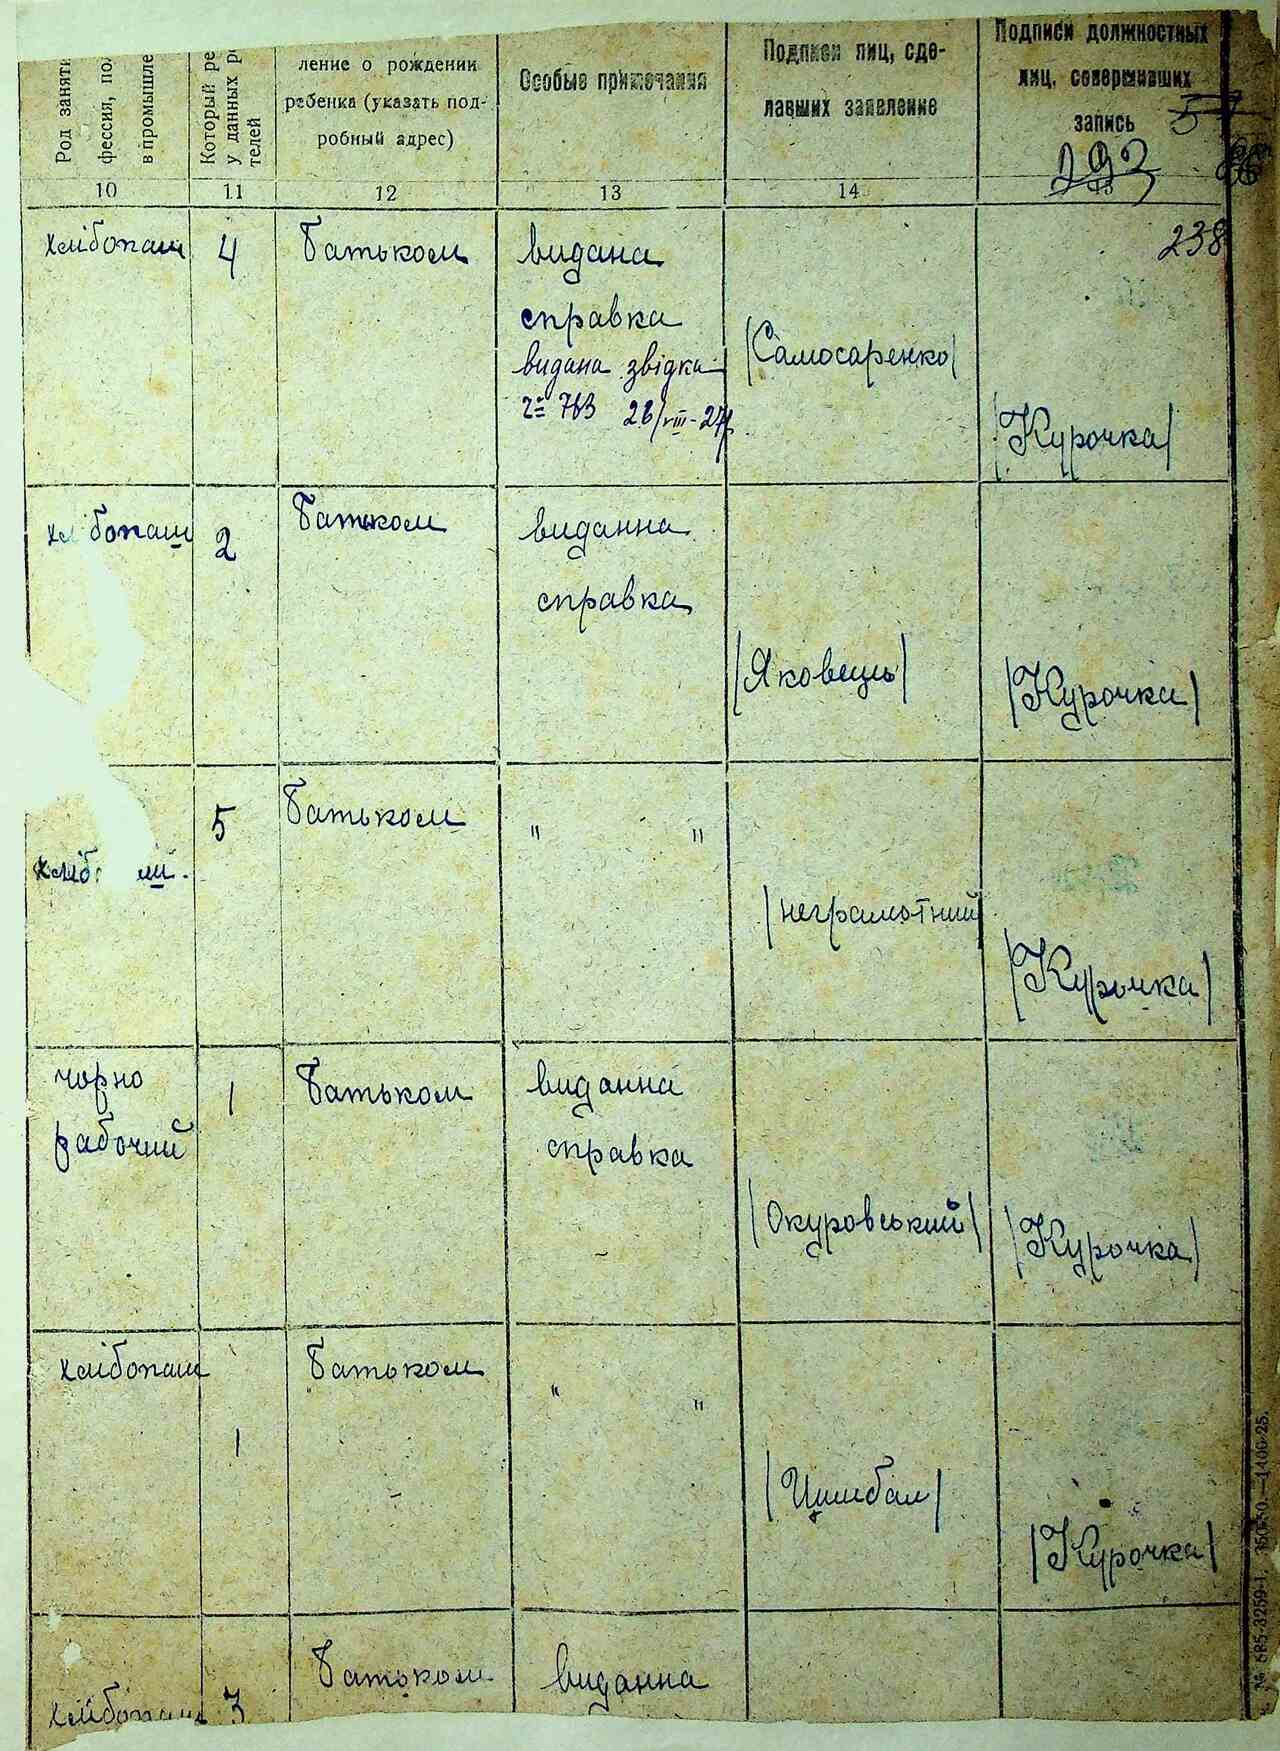 Род заняти
фессия, пол
в промышле
Который ре
у данных ро
телей
ление о рождении
ребенка (указать под-
робный адрес)
Особые примечания
Подписи лиц, сде-
лавших заявление
Подписи должностных
лиц, совершивших
запись
57
292
10
11
12
13
14
15
238
хлібопаш
4
Батьком
видана
справка
видана звідка
763 26/VIII-27р
/Самосаренко/
/Курочка/
хлібопаш
2
Батьком
виданна
справка
/Яковець/
/Курочка/
хліб
5
Батьком
" "
/неграмотний/
/Курочка/
чорно
рабочий
1
Батьком
виданна
справка
/Окуровський/
/Курочка/
хлібопаш
1
Батьком
" "
/Цимбал/
/Курочка/
хлібопаш
3
Батьком
виданна